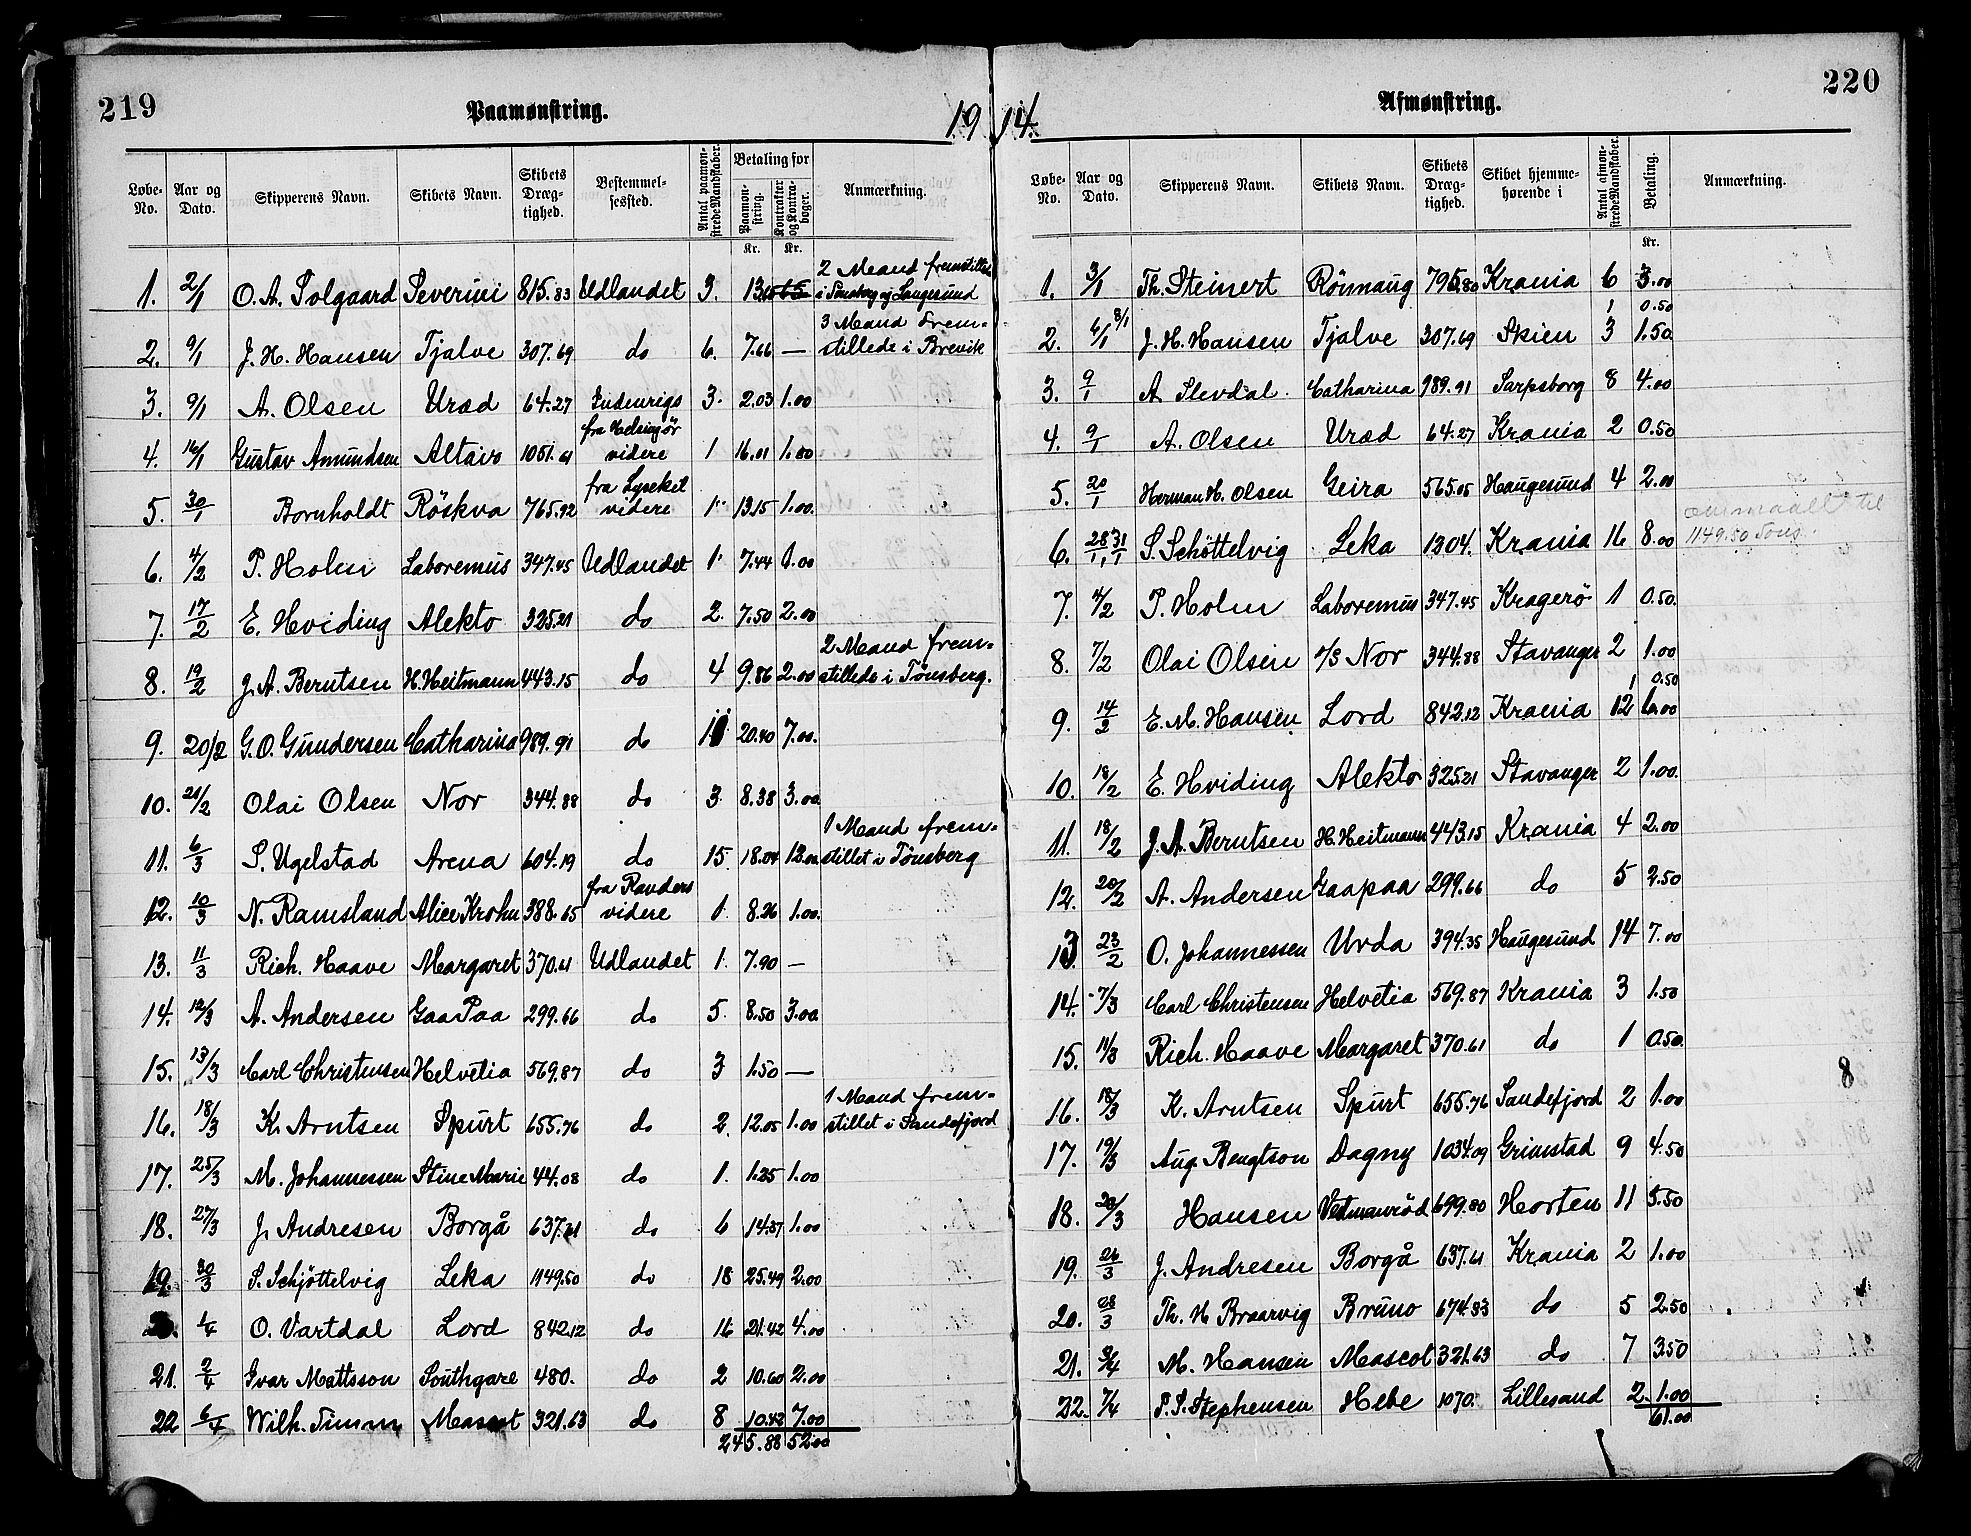 219
Paamønstring.
19
Løbe-No. Aar og Dato. Skipperens Navn. Skibets Navn. Skibets Dræg-tighed. Bestemmel-sessted. Antal paamøn-strede Mandskaber. Betaling for Paamøn-string. Kr. Kontrakter og Kontra-bøger. Kr. Anmærkning.
1. 2/1 O. A. Solgaard Severini 815.83 Udlandet 3. 2 Mand fremstillet i Tønsberg og Langesund
2. 9/1 J. H. Hansen Tjalve 307.69 do 6. 7.66 — 3 Mand frem-stillede i Brevik
3. 9/1 A. Olsen Uræd 64.27 Indenrigs 3. 2.03 1.00
4. 16/1 Gustav Amundsen Altair 1051.61 fra Helsingør videre 1 16.01 1.00
5. 30/1 Bornholdt Röskva 765.92 fra Lysekil videre 1. 13.15 1.00.
6. 4/2 P. Holm Laboremus 347.45 Udlandet 1. 7.44 1.00
7. 17/2 E. Hviding Alekto 325.21 do 2. 7.50 2.00
8. 19/2 J. A. Berntsen H. Heitmann 443.15 do 4 9.86 2.00 2 Mand frem-stillede i Tønsberg.
9. 20/2 G. O. Gundersen Catharina 989.91 do 20.40 7.00.
10. 21/2 Olai Olsen Nor 344.88 do 3. 8.38 3.00.
11. 6/3 S. Ugelstad Arena 604.19 do 15. 18.04 13.00 1 Mand frem-stillet i Tønsberg
12. 10/3 N. Ramsland Alice Krohn 388.65 fra Randers videre 1. 8.26 1.00.
13. 11/3 Rich. Haave Margaret 370.61 Udlandet 1. 7.90 —
14. 12/3 A. Andersen GaaPaa 299.66 do 5. 8.50 3.00.
15. 13/3 Carl Christensen Helvetia 569.87 do 3 1.50 —
16. 18/3 K. Arntsen Spurt 655.76 do 2. 12.05 1.00 1 Mand frem-stillet i Sandefjord
17. 25/3 M. Johannessen Stine Marie 44.08 do 1. 1.25 1.00
18. 27/3 J. Andresen Borgå 637.61 do 6 14.37 1.00
19. 30/3 S. Schjöttelvig Leka 1149.50 do 18 25.49 2.00
20. 1/4 O. Vartdal Lord 842.12 do 16 21.42 4.00
21. 2/4 Ivar Mattsson Southgare 480. do 2 10.60 2.00
22 6/4 Wilh. Timm Mascot 321.63 do 8 10.42 7.00
245.88 52.00
220
Afmønstring.
14.
Løbe-No. Aar og Dato. Skipperens Navn. Skibets Navn. Skibets Dræg-tighed. Skibet hjemme-hørende i Antal afmøn-strede Mandskaber. Betaling. Kr. Anmærkning.
1. 3/1 Th. Steinert Rönnaug 795.80 Krania 6 3.00
1 0.50
2. 6/1 8/1 J. H. Hansen Tjalve 307.69 Skien 3 1.50
3. 9/1 A. Slevdal. Catharina 989.91 Sarpsborg 8 4.00
4. 9/1 A. Olsen Uræd 64.27 Krania 2 0.50
5. 20/1 Herman H. Olsen Geira 565.05 Haugesund 4 2.00
6. 28/1, 31/1 S. Schöttelvig Leka 1304. Krania 16 8.00 ommaalt til 1149.50 Tons.
7. 4/2 P. Holm Laboremus 347.45 Kragerö 1 0.50.
8. 7/2 Olai Olsen s/s Nor 344.88 Stavanger 2 1.00
1 0.50
9. 14/2 E. M. Hansen Lord 842.12 Krania 12 6.00
10. 18/2 E. Hviding Alekto 325.21 Stavanger 2 1.00.
11. 18/2 J. A. Berntsen H. Heitmann 443.15 Krania 4 2.00
12. 20/2 A. Andersen Gaapaa 299.66 do 5 2.50
13. 23/2 O. Johannessen Urda 394.35 Haugesund 14 7.00
14. 7/3 Carl Christensen Helvetia 569.87 Krania 3 1.50
15. 11/3 Rich. Haave Margaret 370.61 do 1 0.50.
16. 18/3 K. Arntsen Spurt 655.76 Sandefjord 2 1.00
8
17. 19/3 Aug. Bengtson Dagny 1034.09 Grimstad 9 4.50
18. 20/3 Hansen 699.80 Horten 11 5.50
19. 26/3 J. Andresen Borgå 637.61 Krania 2 1.00
20. 28/3 Th. H Braarvig Bruno 674.83 do 5 2.50
21. 3/4 M. Hansen Mascot 321.63 do 7 3.50
22. 7/4 P. S. Stephensen Hebe 1070. Lillesand 2. 1.00
61.00